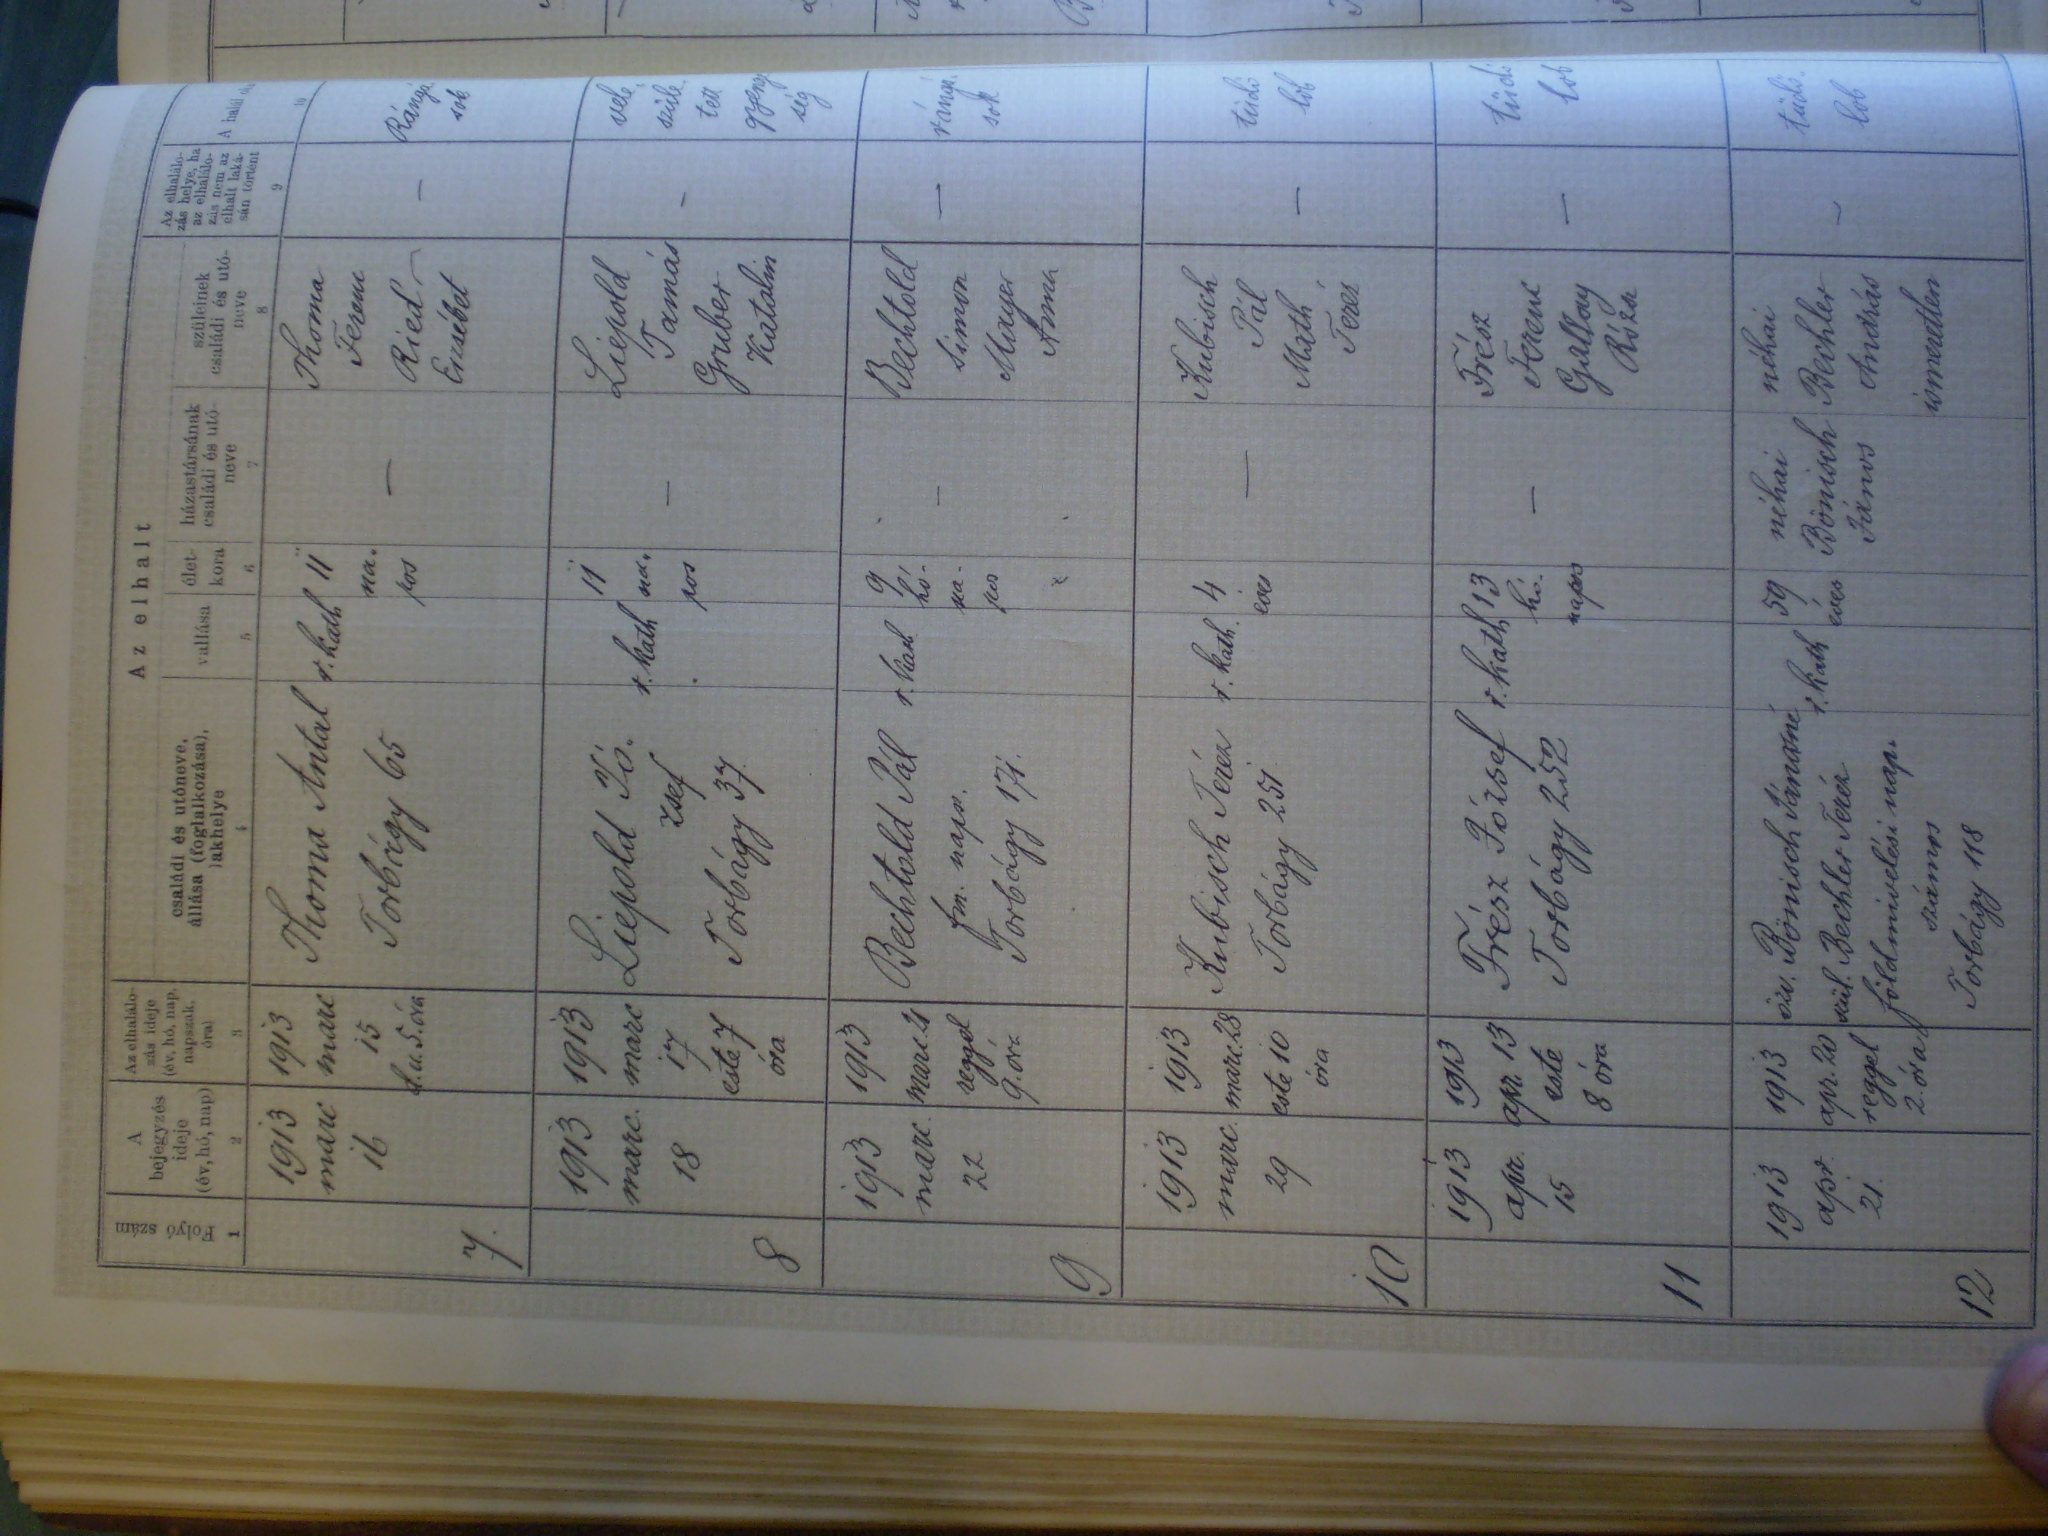 Az elhalt
Folyó szám
A bejegyzés ideje (év, hó, nap)
Az elhalálo-
zás ideje
(év, hó, nap,
napszak,
óra)
családi és utóneve,
állása (foglalkozása),
lakhelye
vallása
élet-
kora
házastársának
családi és utó-
neve
szüleinek
családi és utó-
neve
Az elhalálo-
zás helye, ha
az elhalálo-
zás nem az
elhalt laká-
sán történt
A halál
1 2 3 4 5 6 7 8 9 10
7.
1913
marc
16
1913
marc
15
d.u. 5. óra
Thoma Antal
Torbágy 65
r. kath
11
na.
pos
—
Thoma
Ferenc
Ried
Erzsébet
—
Rángá
sok
8
1913
marc.
18
1913
marc
17
este 7
óra
Liepold Jó.
zsef
Torbágy 37.
r. kath
11
na.
pos
—
Liepold
Tamás
Gruber
Katalin
—
vele
szüle
tett
gyeng
ség
9
1913
marc.
22
1913
marc. 21
reggel
9. óra
Bechtold Pál
fm. naps.
Torbágy 171.
r. kath
9
hó-
na-
pos
—
Bechtold
Simon
Mayer
Anna
—
rángá
sok
10
1913
marc.
29
1913
marc. 28
este 10
óra
Kubisch Teréz
Torbágy 251
r. kath.
4
éves
—
Kubisch
Pál
Math
Teréz
—
tüdő
lob
11
1913
apr.
15
1913
apr. 13
este
8 óra
Frész József
Torbágy 252
r. kath
13
hó.
napos
—
Frész
Ferenc
Gallay
Róza
—
tüdő
lob
12
1913
apr.
21.
1913
apr. 20
reggel
2. óra
özv. Bönisch Jánosné
szül. Bechler Teréz
földmivelési nap.
számos
Torbágy 118
r. kath
59
éves
néhai
Bönisch
János
néhai
Bechler
András
ismeretlen
—
tüdő.
lob